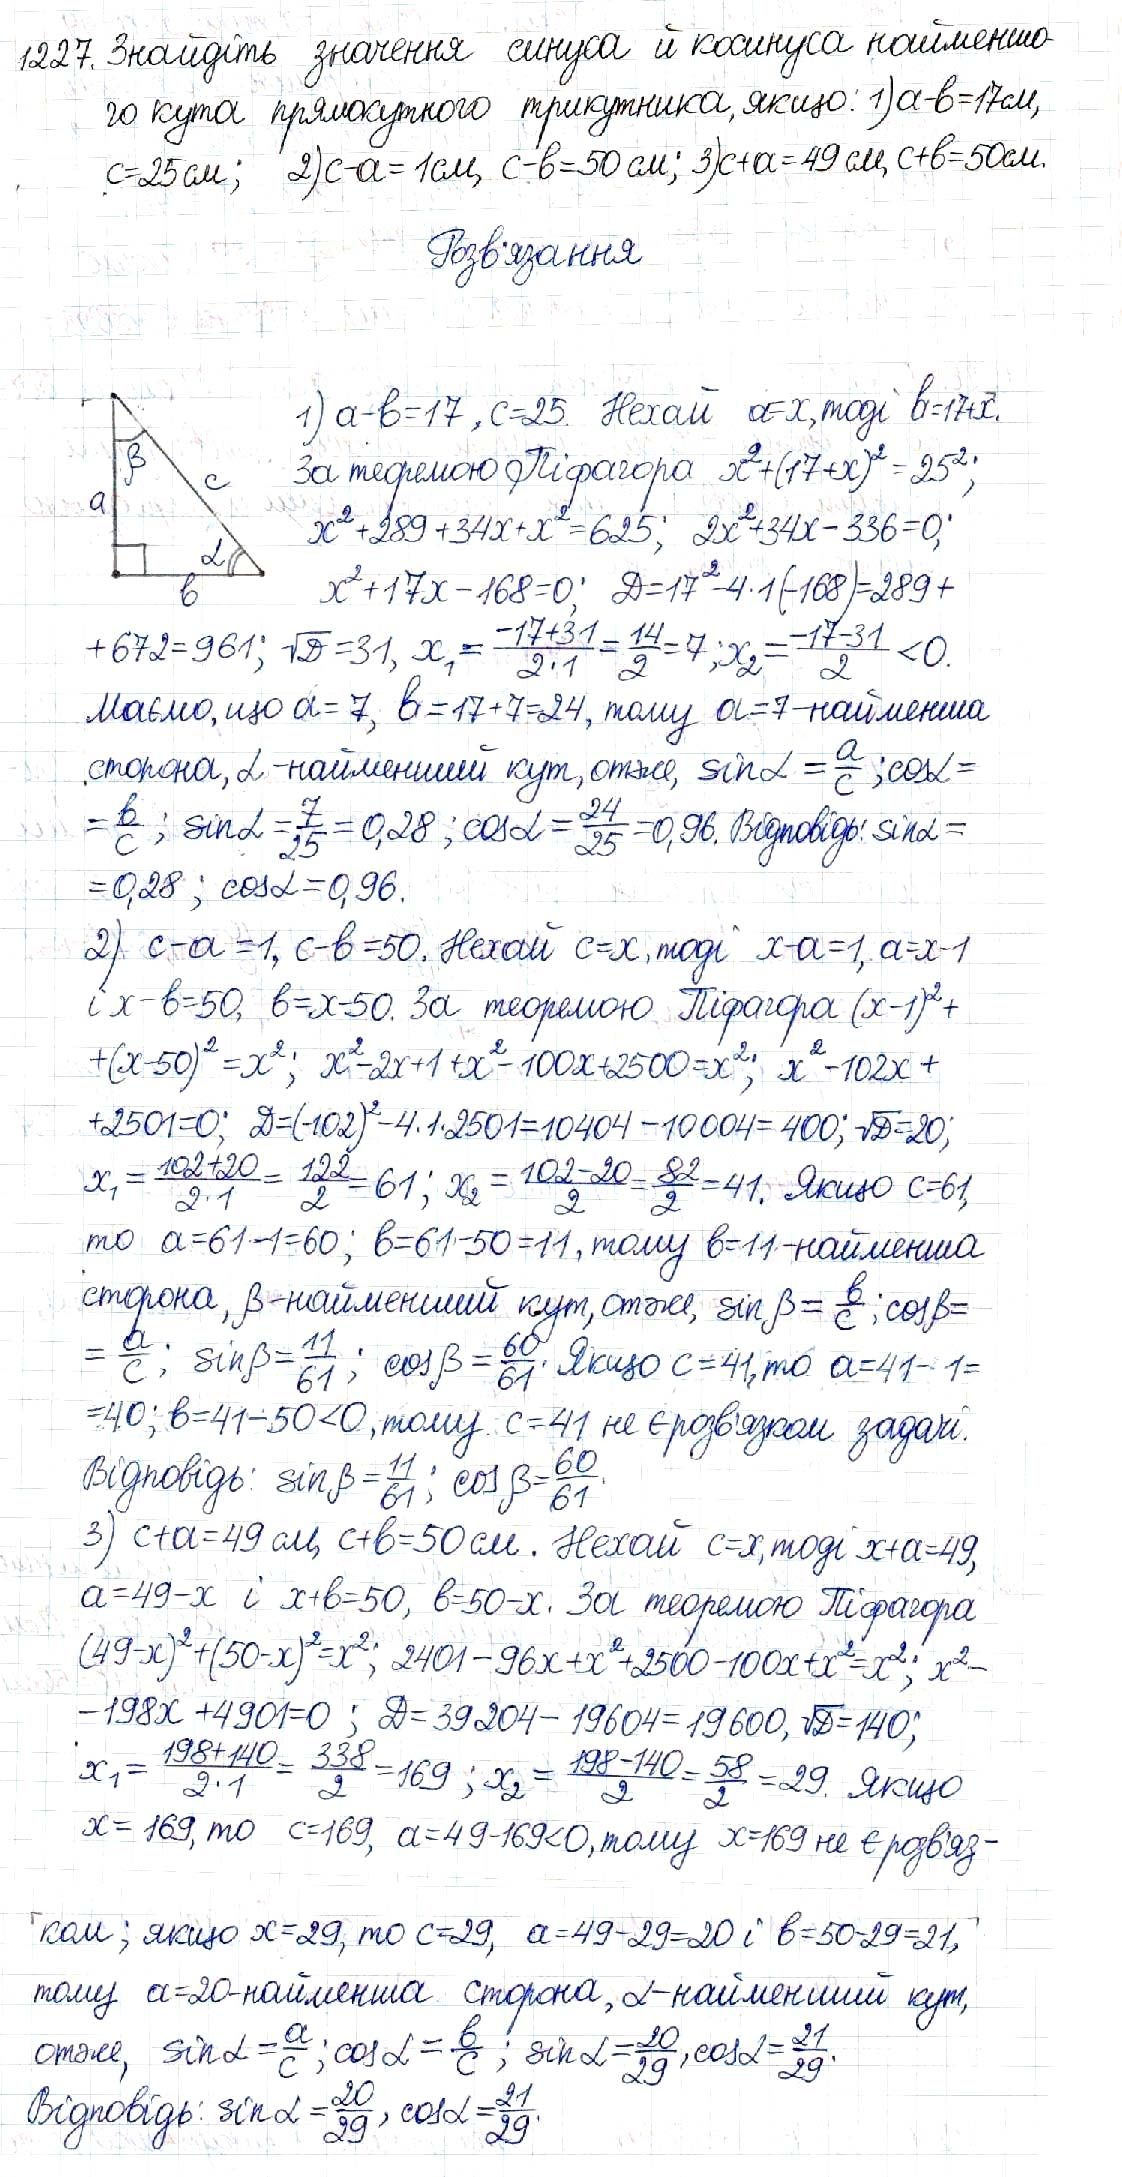 1227. Знайдіть значення синуса й косинуса найменшо-
го кута прямокутного трикутника, якщо: 1) a-b=17см,
c=25см; 2) c-a=1см, c-b=50см; 3) c+a=49см, c+b=50см.
Розв'язання
1) a-b=17, c=25. Нехай a=x, тоді b=17+x.
За теоремою Піфагора x²+(17+x)²=25²;
x²+289+34x+x²=625; 2x²+34x-336=0;
x²+17x-168=0; D=17²-4·1(-168)=289+
β
a
c
α
b
+672=961; √D=31, x₁=(-17+31)/(2·1)=14/2=7; x₂=(-17-31)/2<0.
Маємо, що a=7, b=17+7=24, тому a=7-найменша
сторона, α-найменший кут, отже, sinα=a/c; cosα=
=b/c; sinα=7/25=0,28; cosα=24/25=0,96. Відповідь: sinα=
=0,28; cosα=0,96.
2) c-a=1, c-b=50. Нехай c=x, тоді x-a=1, a=x-1
і x-b=50, b=x-50. За теоремою Піфагора (x-1)²+
+(x-50)²=x²; x²-2x+1+x²-100x+2500=x²; x²-102x+
+2501=0; D=(-102)²-4·1·2501=10404-10004=400; √D=20;
x₁=(102+20)/(2·1)=122/2=61; x₂=(102-20)/2=82/2=41. Якщо c=61,
то a=61-1=60; b=61-50=11, тому b=11-найменша
сторона, β-найменший кут, отже, sinβ=b/c; cosβ=
=a/c; sinβ=11/61; cosβ=60/61. Якщо c=41, то a=41-1=
=40; b=41-50<0, тому c=41 не є розв'язком задачі.
Відповідь: sinβ=11/61; cosβ=60/61.
3) c+a=49см, c+b=50см. Нехай c=x, тоді x+a=49,
a=49-x і x+b=50, b=50-x. За теоремою Піфагора
(49-x)²+(50-x)²=x²; 2401-96x+x²+2500-100x+x²=x²; x²-
-198x+4901=0; D=39204-19604=19600, √D=140;
x₁=(198+140)/(2·1)=338/2=169; x₂=(198-140)/2=58/2=29. Якщо
x=169, то c=169, a=49-169<0, тому x=169 не є розв'яз-
ком; якщо x=29, то c=29, a=49-29=20 і b=50-29=21,
тому a=20-найменша сторона, α-найменший кут,
отже, sinα=a/c; cosα=b/c; sinα=20/29, cosα=21/29.
Відповідь: sinα=20/29, cosα=21/29.